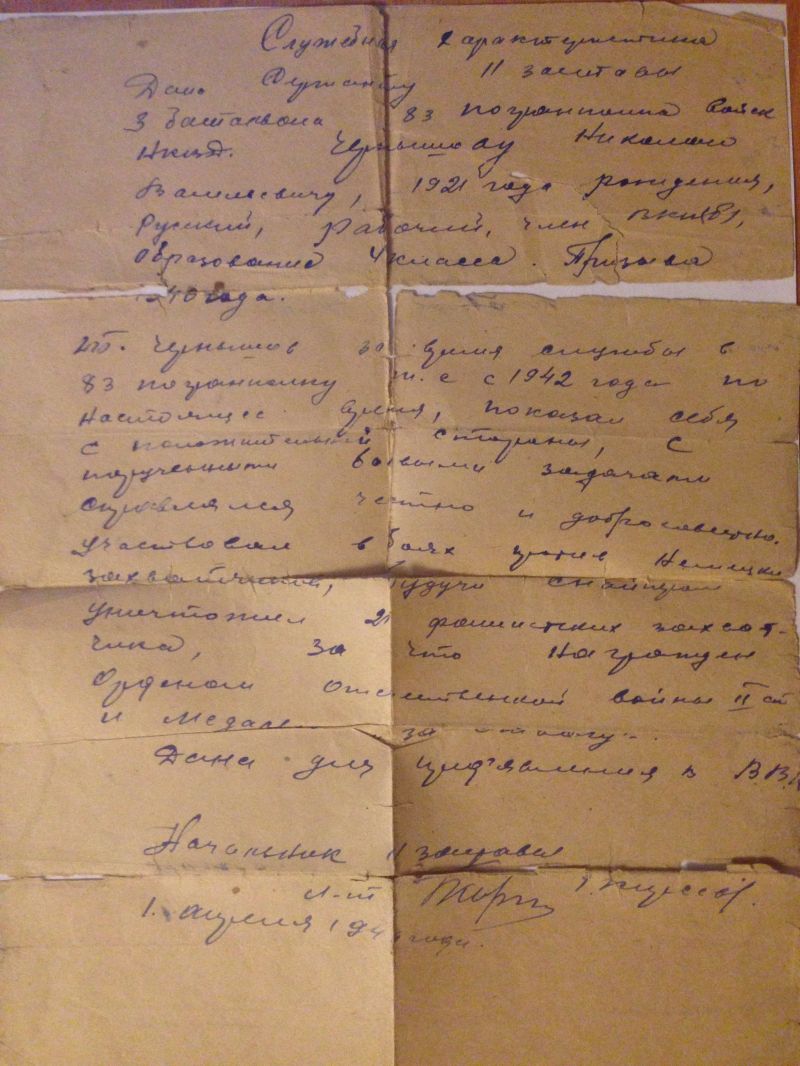 Служебная характеристика
Дана Сержанту 11 заставы
3 батальона 83 погранполка войск
НКВД. Чернышову Николаю
Васильевичу, 1921 года рождения,
Русский, рабочий, член ВКП(б),
образование 4 класса. Призыва
1940 года.
Чернышов за время службы в
83 погранполку с 1942 года по
настоящее время, показал себя
с положительной стороны, с
порученными боевыми задачами
справлялся честно и добросовестно.
Участвовал в боях против Немецких
захватчиков, будучи снайпером
уничтожил 21 фашистских захват-
чика, за что награжден
Орденом отечественной войны II ст
и Медалью за отвагу.
Дана для предъявления в В.В.К
Начальник 11 заставы
л-т
1. апреля 194 года.